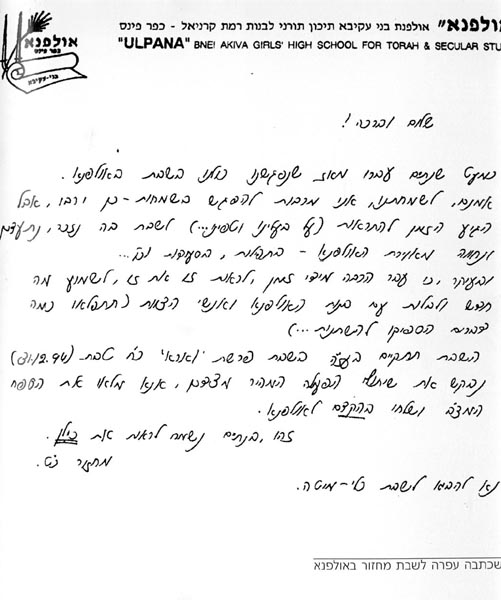 אולפנא" אולפנת בני עקיבא תיכון תורני לבנות רמת קרניאל - כפר פינס
"ULPANA" BNEI AKIVA GIRLS' HIGH SCHOOL FOR TORAH & SECULAR STU
אולפנא
כפר פינס
בני-עקיבא
שלום וברכה!
כמעט שנתים עברו מאז שנפגשנו כולנו בשבת באולפנא.
אמנם, לשמחתנו, אנו מרבות להפגש בשמחות - כן ירבו, אבל
הגיע הזמן להתראות (על בעלינו וטפינו...) לשבת בה נזכר, נתעדכן
ונהנה מאוירת האולפנא - בתפלות, בסעודות וכו'...
ובעיקר, כי עבר הרבה מידי זמן, לראות זו את זו, לשמוע מה
חדש ולבלות עם בנות האולפנא ואנשי הצוות (תתפלאו כמה
דברים הספיקו להשתנות...)
השבת תתקיים בעז"ה בשבת פרשת 'וארא' כ"ח טבת (31.12.94)
נבקש את שיתוף הפעולה המהיר מצדכן, אנא מלאו את הספח
המצ"ב ושלחי בהקדם לאולפנא.
זהו, בנתים נשמח לראות את כולן.
מחזור כ"ט.
נא להביא לשבת כלי-מיטה.
שכתבה עפרה לשבת מחזור באולפנא